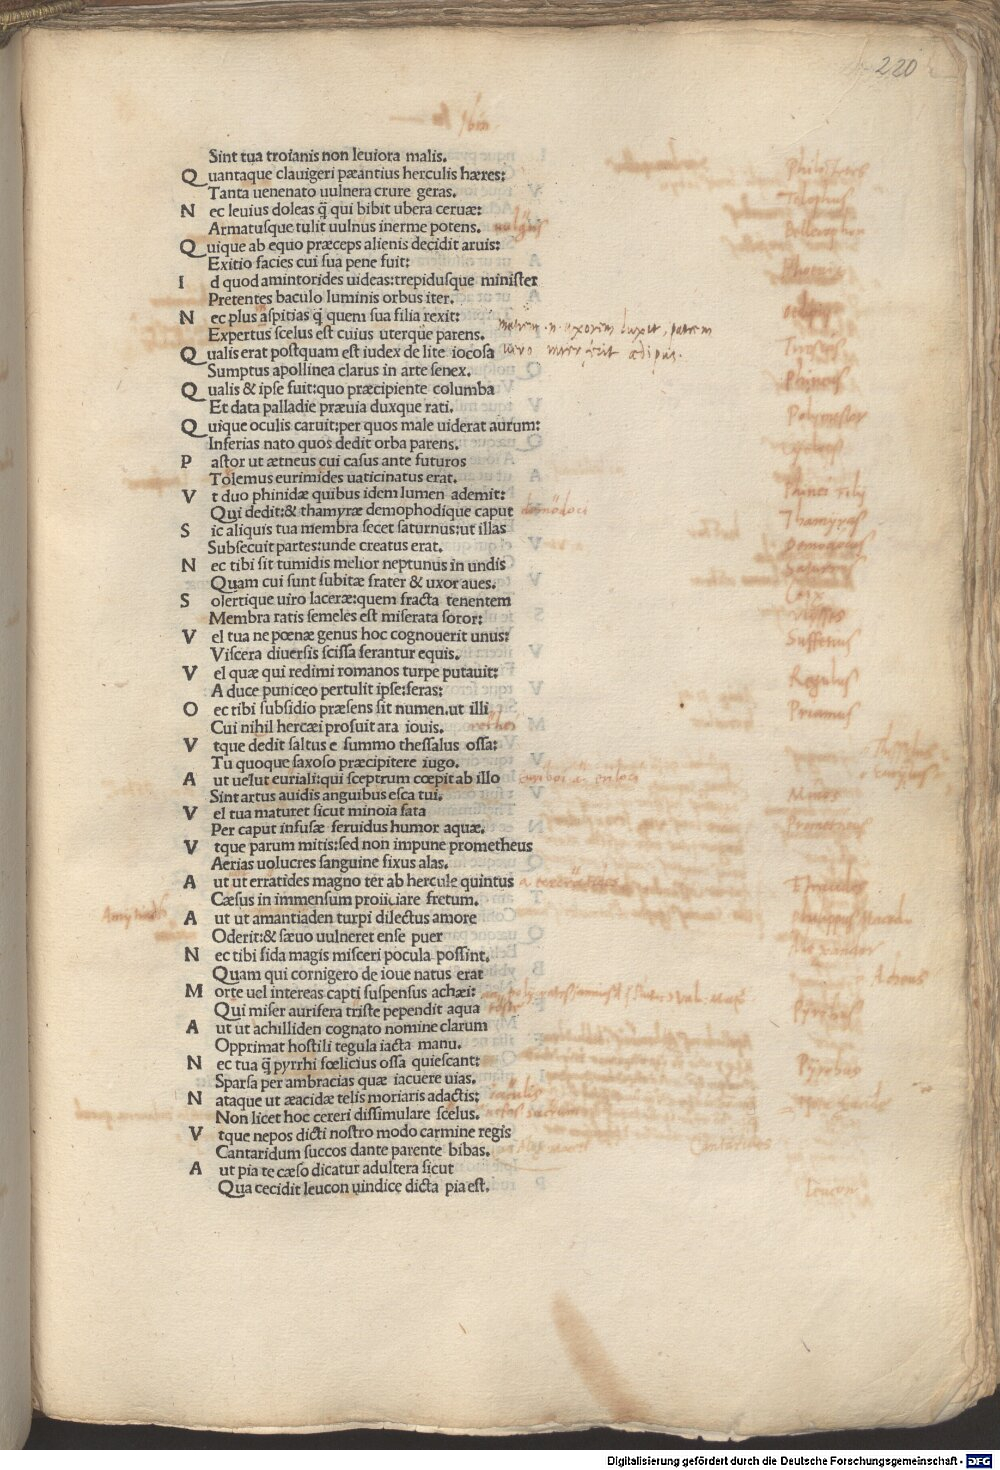 220
Ibin
Sint tua troianis non leuiora malis.
Quantaque clauigeri pæantius herculis hæres:
Tanta uenenato uulnera crure geras.
Nec leuius doleas q̃ qui bibit ubera ceruæ:
Armatusque tulit uulnus inerme potens.
Quique ab equo præceps alienis decidit aruis:
Exitio facies cui sua pene fuit:
Id quod amintorides uideas:trepidusque minister
Pretentes baculo luminis orbus iter.
Nec plus aspitias q̃ quem sua filia rexit:
Expertus scelus est cuius uterque parens.
Qualis erat postquam est iudex de lite iocosa
Sumptus apollinea clarus in arte senex.
Qualis & ipse fuit:quo præcipiente columba
Et data palladie præuia duxque rati.
Quique oculis caruit:per quos male uiderat aurum:
Inferias nato quos dedit orba parens.
Pastor ut ætneus cui casus ante futuros
Tolemus eurimides uaticinatus erat.
Vt duo phinidæ quibus idem lumen ademit:
Qui dedit:& thamyræ demophodique caput
Sic aliquis tua membra secet saturnus:ut illas
Subsecuit partes:unde creatus erat.
Nec tibi sit tumidis melior neptunus in undis
Quam cui sunt subitæ frater & uxor aues.
Solertique uiro laceræ:quem fracta tenentem
Membra ratis semeles est miserata soror:
Vel tua ne pœnæ genus hoc cognouerit unus:
Viscera diuersis scissa ferantur equis.
Vel quæ qui redimi romanos turpe putauit:
A duce puniceo pertulit ipse:feras:
Oec tibi subsidio præsens sit numen.ut illi
Cui nihil hercæi profuit ara iouis.
Vtque dedit saltus e summo thessalus ossa:
Tu quoque saxoso præcipitere iugo.
Aut uelut euriali:qui sceptrum cœpit ab illo
Sint artus auidis anguibus esca tui.
Vel tua maturet sicut minoia fata
Per caput infusæ feruidus humor aquæ.
Vtque parum mitis:sed non impune prometheus
Aerias uolucres sanguine fixus alas.
Aut ut erratides magno ter ab hercule quintus
Cæsus in immensum proiiciare fretum.
Aut ut amantiaden turpi dilectus amore
Oderit:& sæuo uulneret ense puer
Nec tibi fida magis misceri pocula possint.
Quam qui cornigero de ioue natus erat
Morte uel intereas capti suspensus achæi:
Qui miser aurifera triste pependit aqua
Aut ut achilliden cognato nomine clarum
Opprimat hostili tegula iacta manu.
Nec tua q̃ pyrrhi fœlicius ossa quiescant:
Sparsa per ambracias quæ iacuere uias.
Nataque ut æacidæ telis moriaris adactis:
Non licet hoc cereri dissimulare scelus.
Vtque nepos dicti nostro modo carmine regis
Cantaridum succos dante parente bibas.
Aut pia te cæso dicatur adultera sicut
Qua cecidit leucon uindice dicta pia est.
Telephus
Phineus
Thamyras
Saturnus
Ceix
Ulysses
Regulus
Priamus
Minos
Prometheus
Pyrrhus
Pyrrhus
Cantarides
Leucon
Digitalisierung gefördert durch die Deutsche Forschungsgemeinschaft - DFG